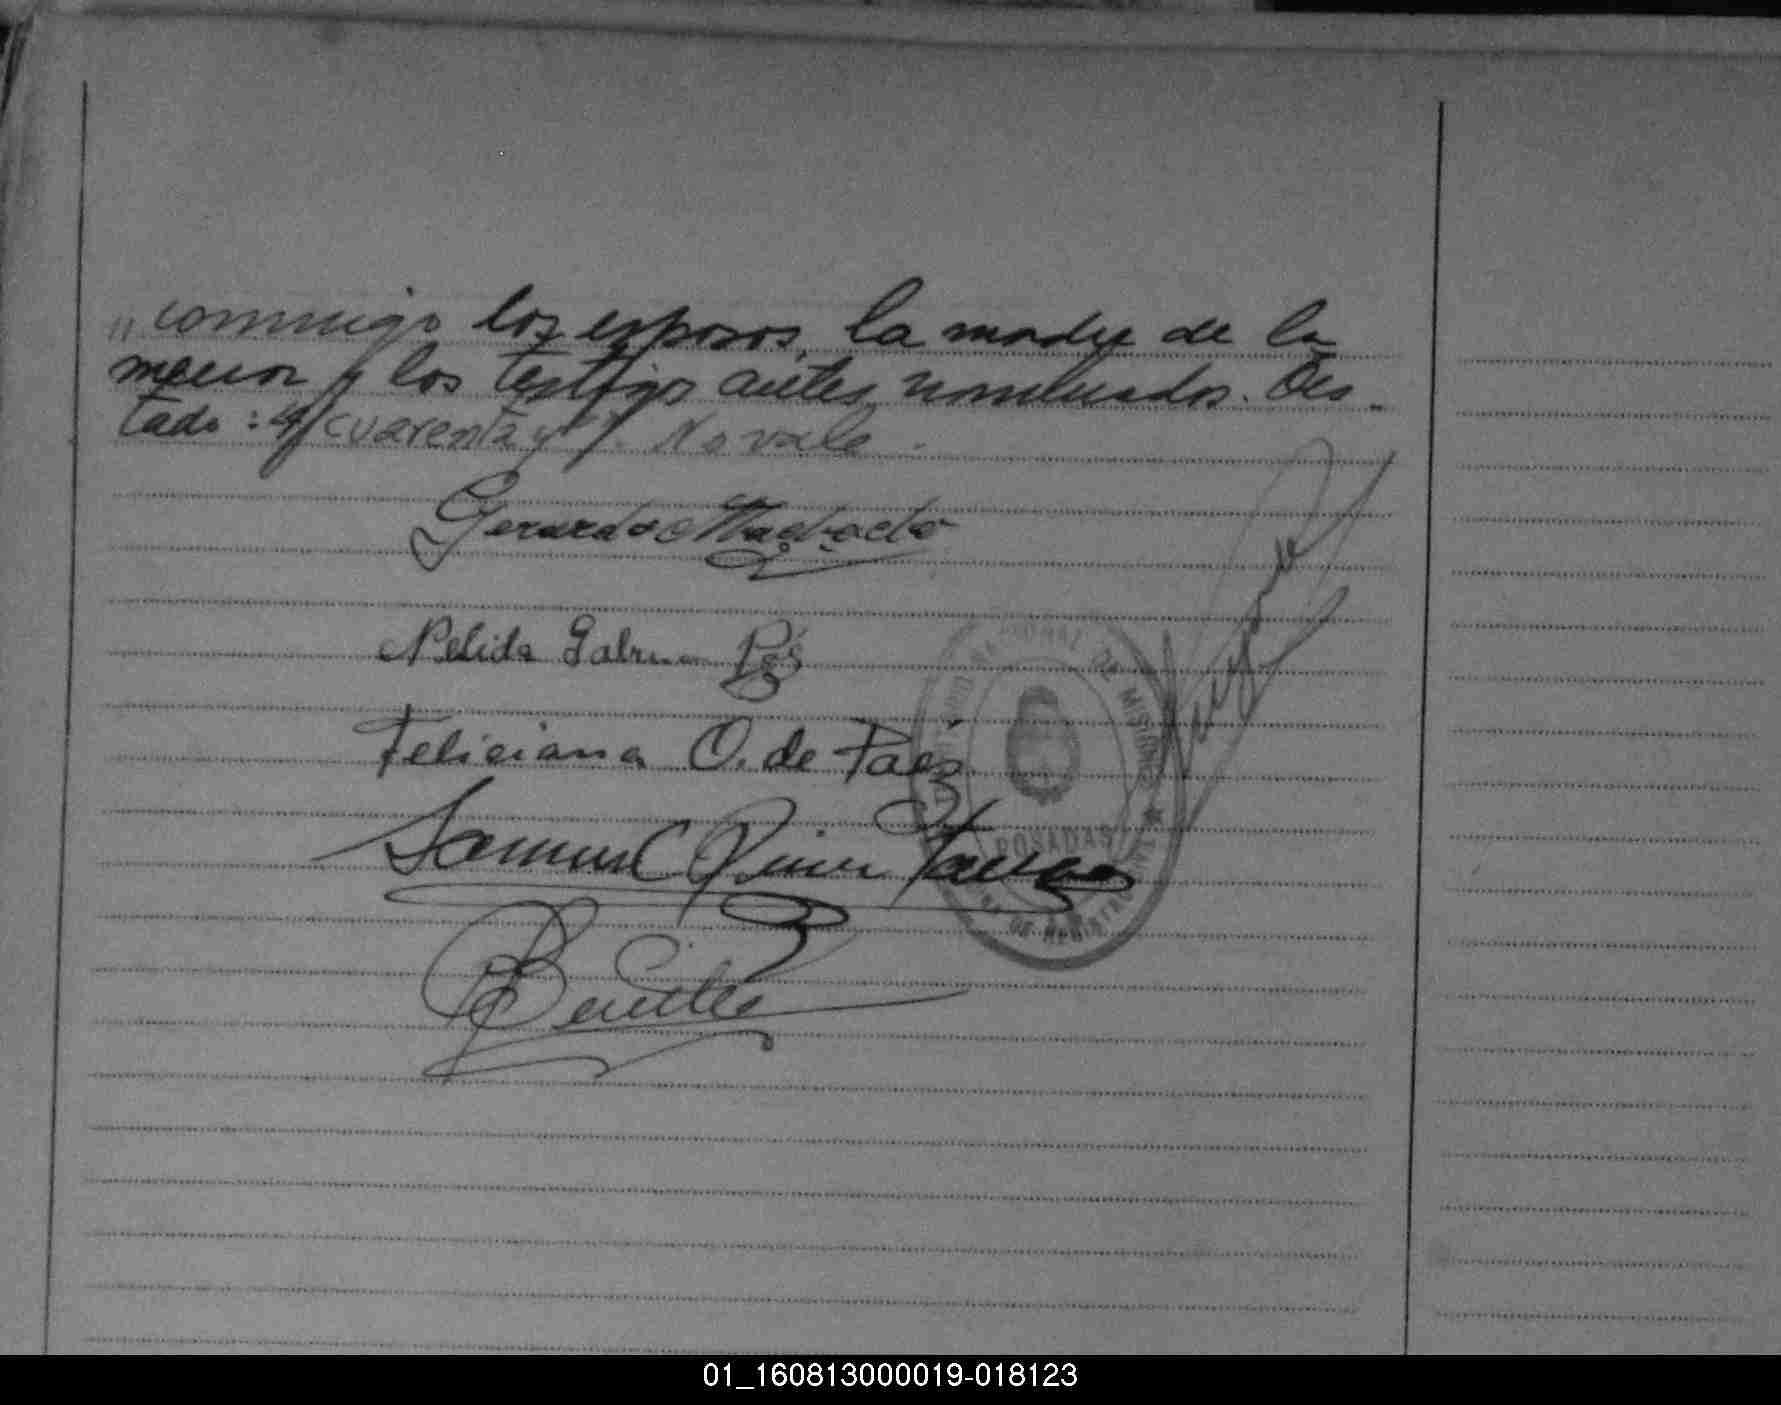 " conmigo los esposos, la madre de la
menor y los testigos antes nombrados. Tes-
tado: 4/cuarenta y". No vale.
Gerardo Machado
Nelida Gabrina Páz
Feliciana O. de Paéz
Samuel Quintana
Benitez
NACIONAL DE MISIONES
POSADAS
01_160813000019-018123